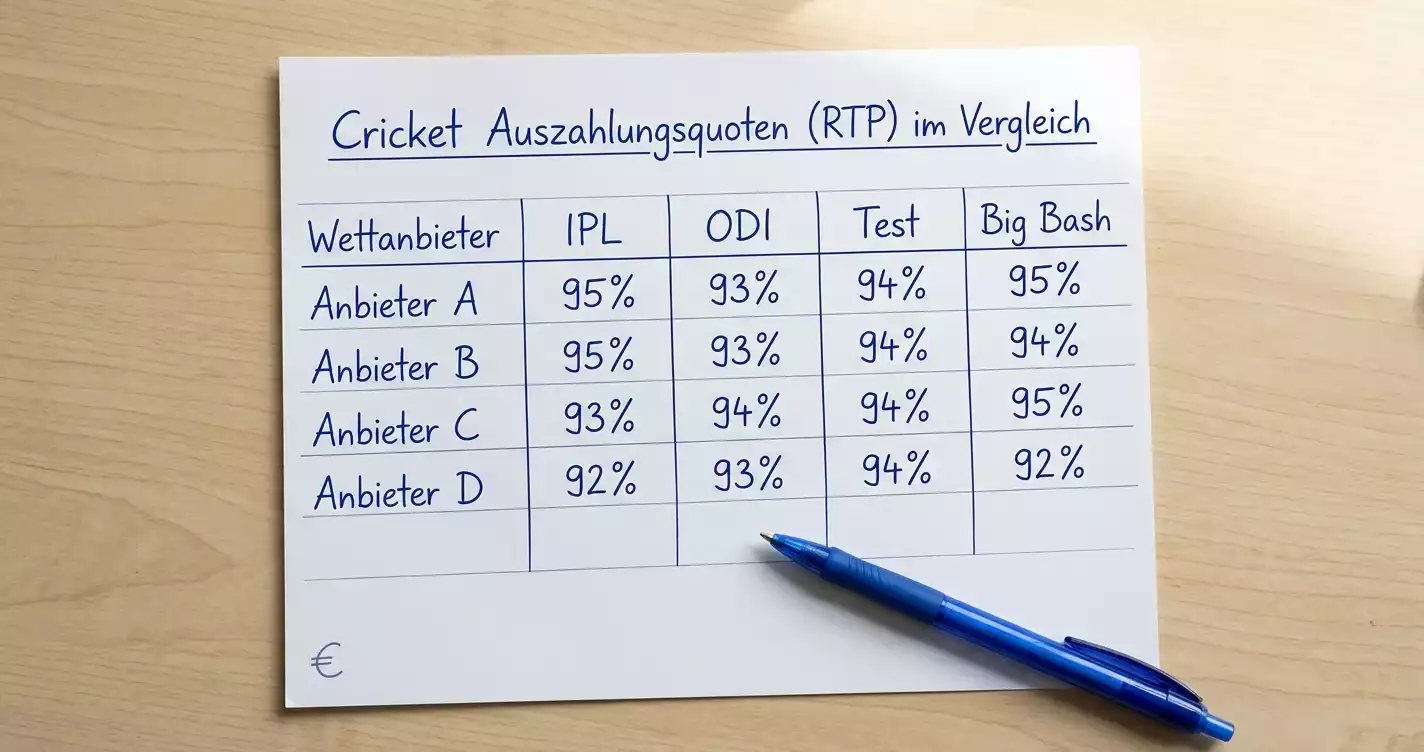 Cricket Auszahlungsquoten (RTP) im Vergleich
Wettanbieter IPL ODI Test Big Bash
Anbieter A 95% 93% 94% 95%
Anbieter B 95% 93% 94% 94%
Anbieter C 93% 94% 94% 95%
Anbieter D 92% 93% 94% 92%
€